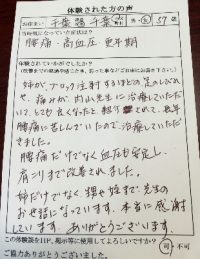 体験された方の声
お住まい 千葉県 千葉 市 男・女 57歳
当時気になっていた症状は?
腰痛・高血圧・更年期
体験されていかがでしたか?
姉が、ブロック注射するほどの足のしびれ
や、痛みが、内山先生に治療していただい
て、とても良くなったと紹介されて、長年
腰痛に苦しんでいたので、治療していただき
ました。
腰痛だけでなく血圧も安定し、
肩こりまで改善されました。
姉だけでなく、甥や姪まで先生の
お世話になっています。本当に感謝
しています。ありがとうございます。
この体験談をHP、掲示等に使用してよろしいですか? 可・不可
ご協力ありがとうございました。